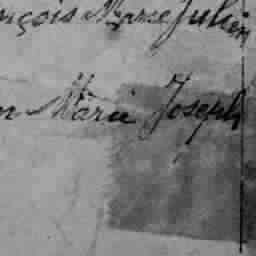 nçois Marie Julien
n Marie Joseph